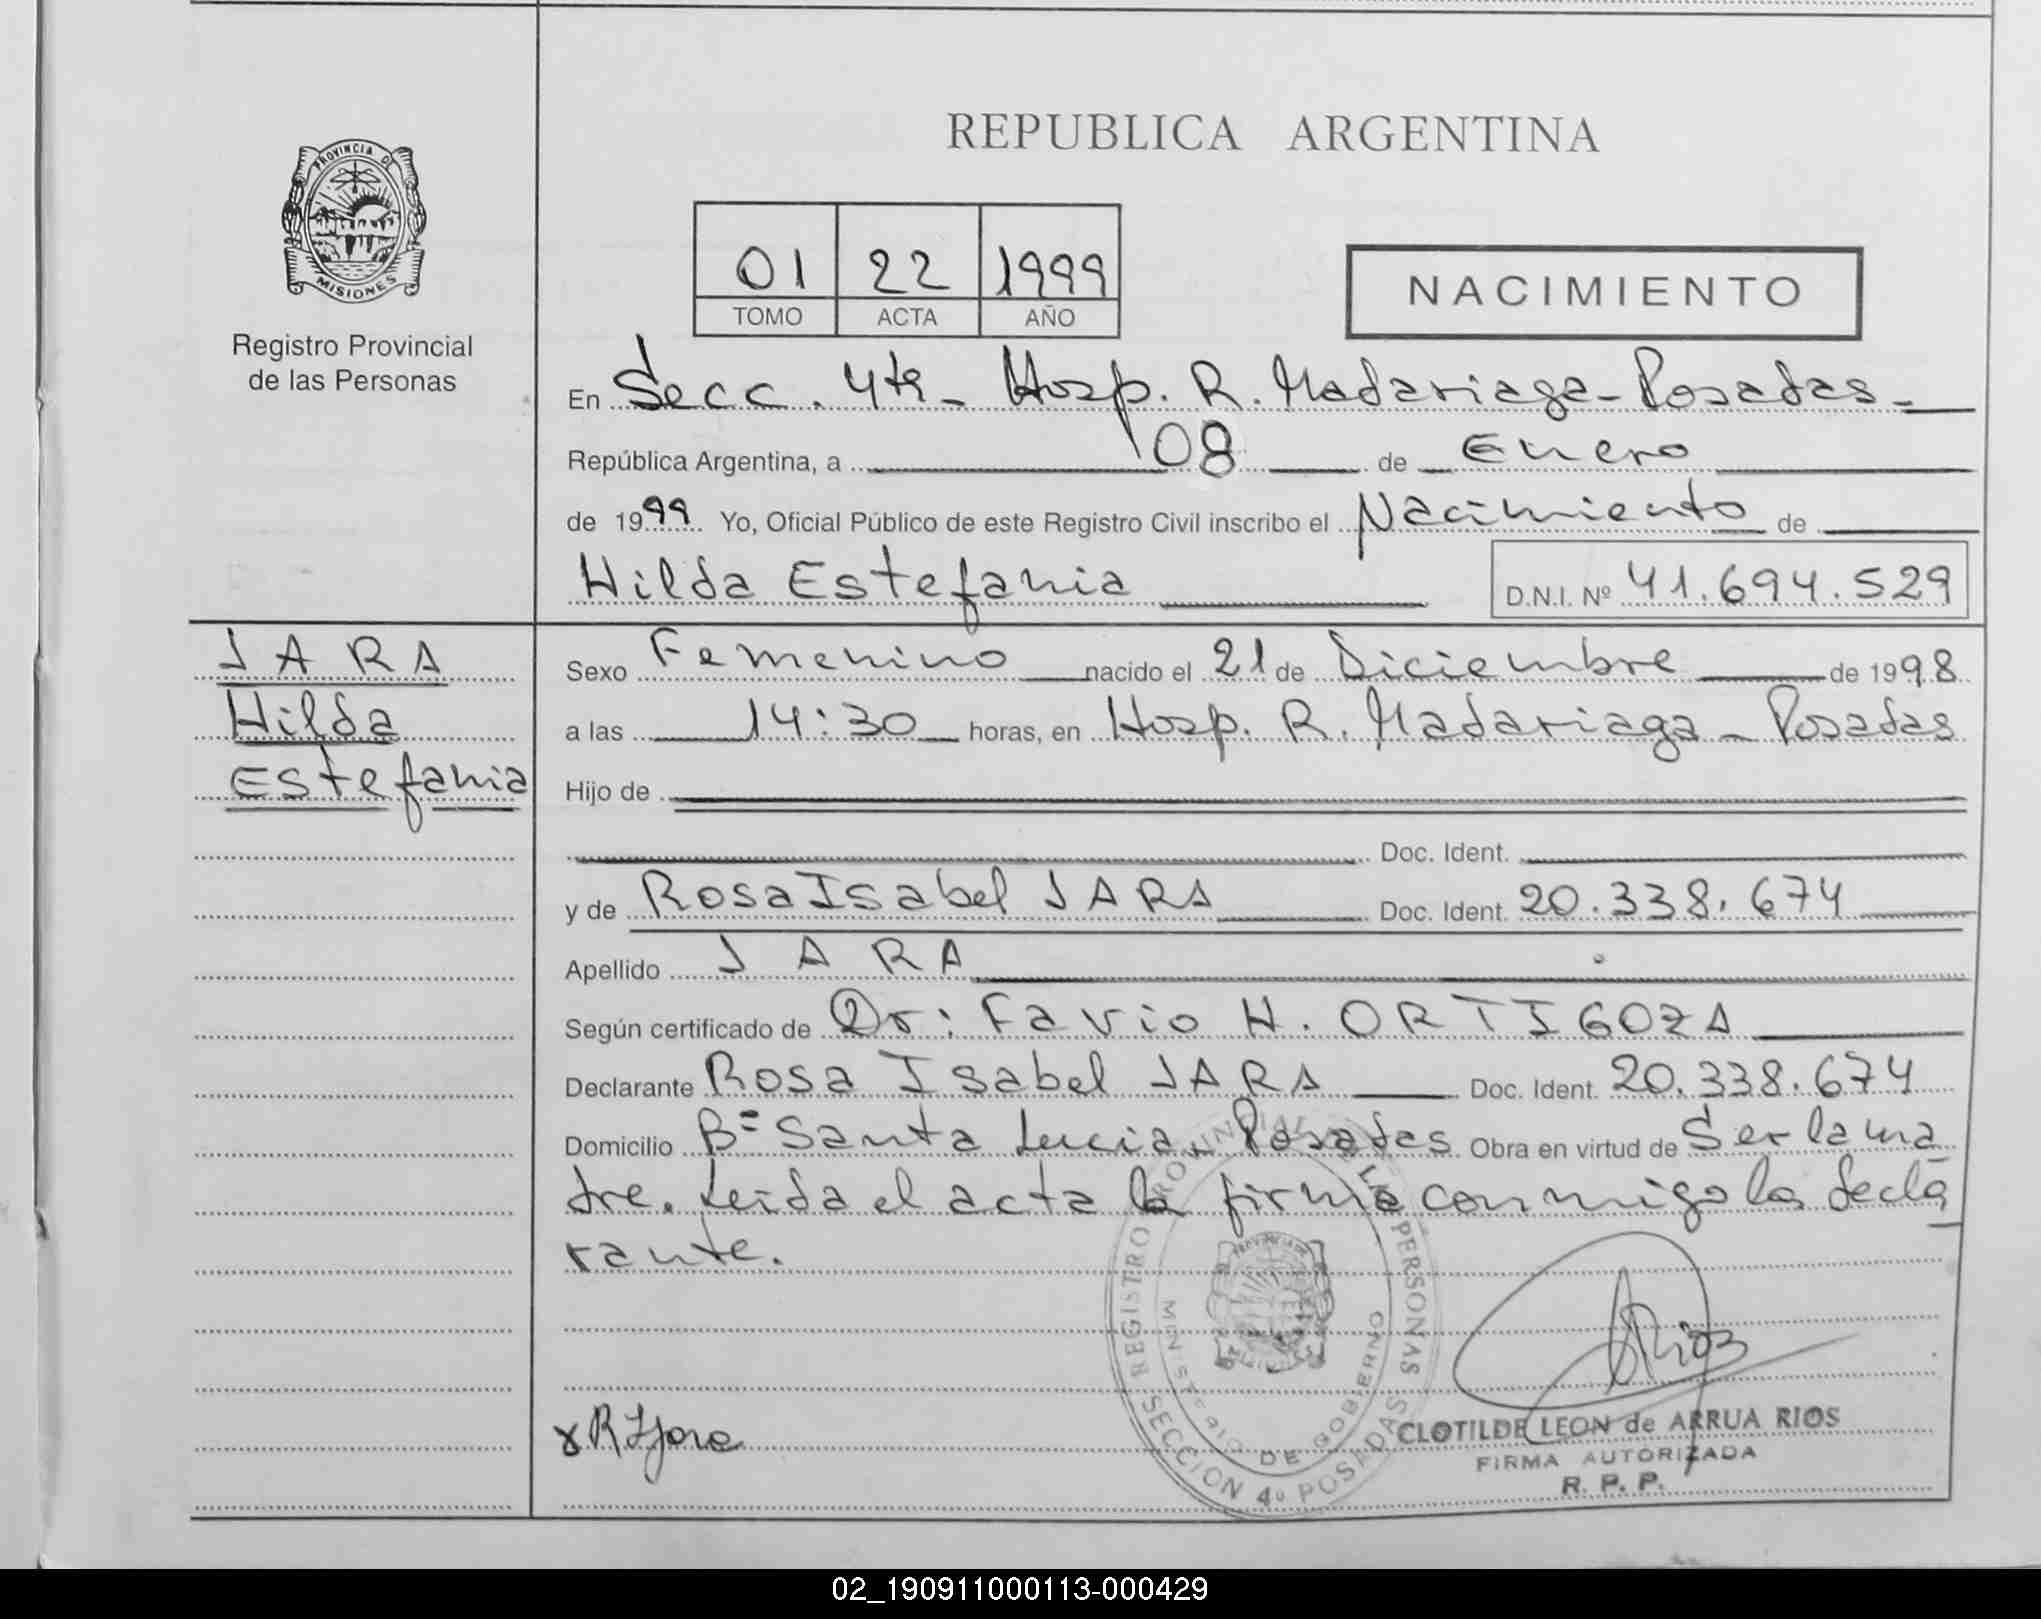 REPUBLICA ARGENTINA
PROVINCIA DE
MISIONES
Registro Provincial
de las Personas
01 22 1999
TOMO ACTA AÑO
NACIMIENTO
En Secc. 4ta - Hosp. R. Madariaga - Posadas -
República Argentina, a 08 de Enero
de 1999 Yo, Oficial Público de este Registro Civil inscribo el Nacimiento de
Hilda Estefania D.N.I. Nº 41.694.529
JARA
Hilda
Estefania
Sexo Femenino nacido el 21 de Diciembre de 1998
a las 14:30 horas, en Hosp. R. Madariaga - Posadas
Hijo de
Doc. Ident.
y de Rosa Isabel JARA Doc. Ident. 20.338.674
Apellido JARA
Según certificado de Dr: Favio H. ORTIGOZA
Declarante Rosa Isabel JARA Doc. Ident. 20.338.674
Domicilio Bº Santa Lucia, Posadas Obra en virtud de Ser la ma
dre. Leida el acta la firma conmigo la decla
rante.
REGISTRO PROVINCIAL DE LAS PERSONAS
MINISTERIO DE GOBIERNO
SECCION 4º POSADAS
Rios
x R I Jara
CLOTILDE LEON de ARRUA RIOS
FIRMA AUTORIZADA
R. P. P.
02_190911000113-000429